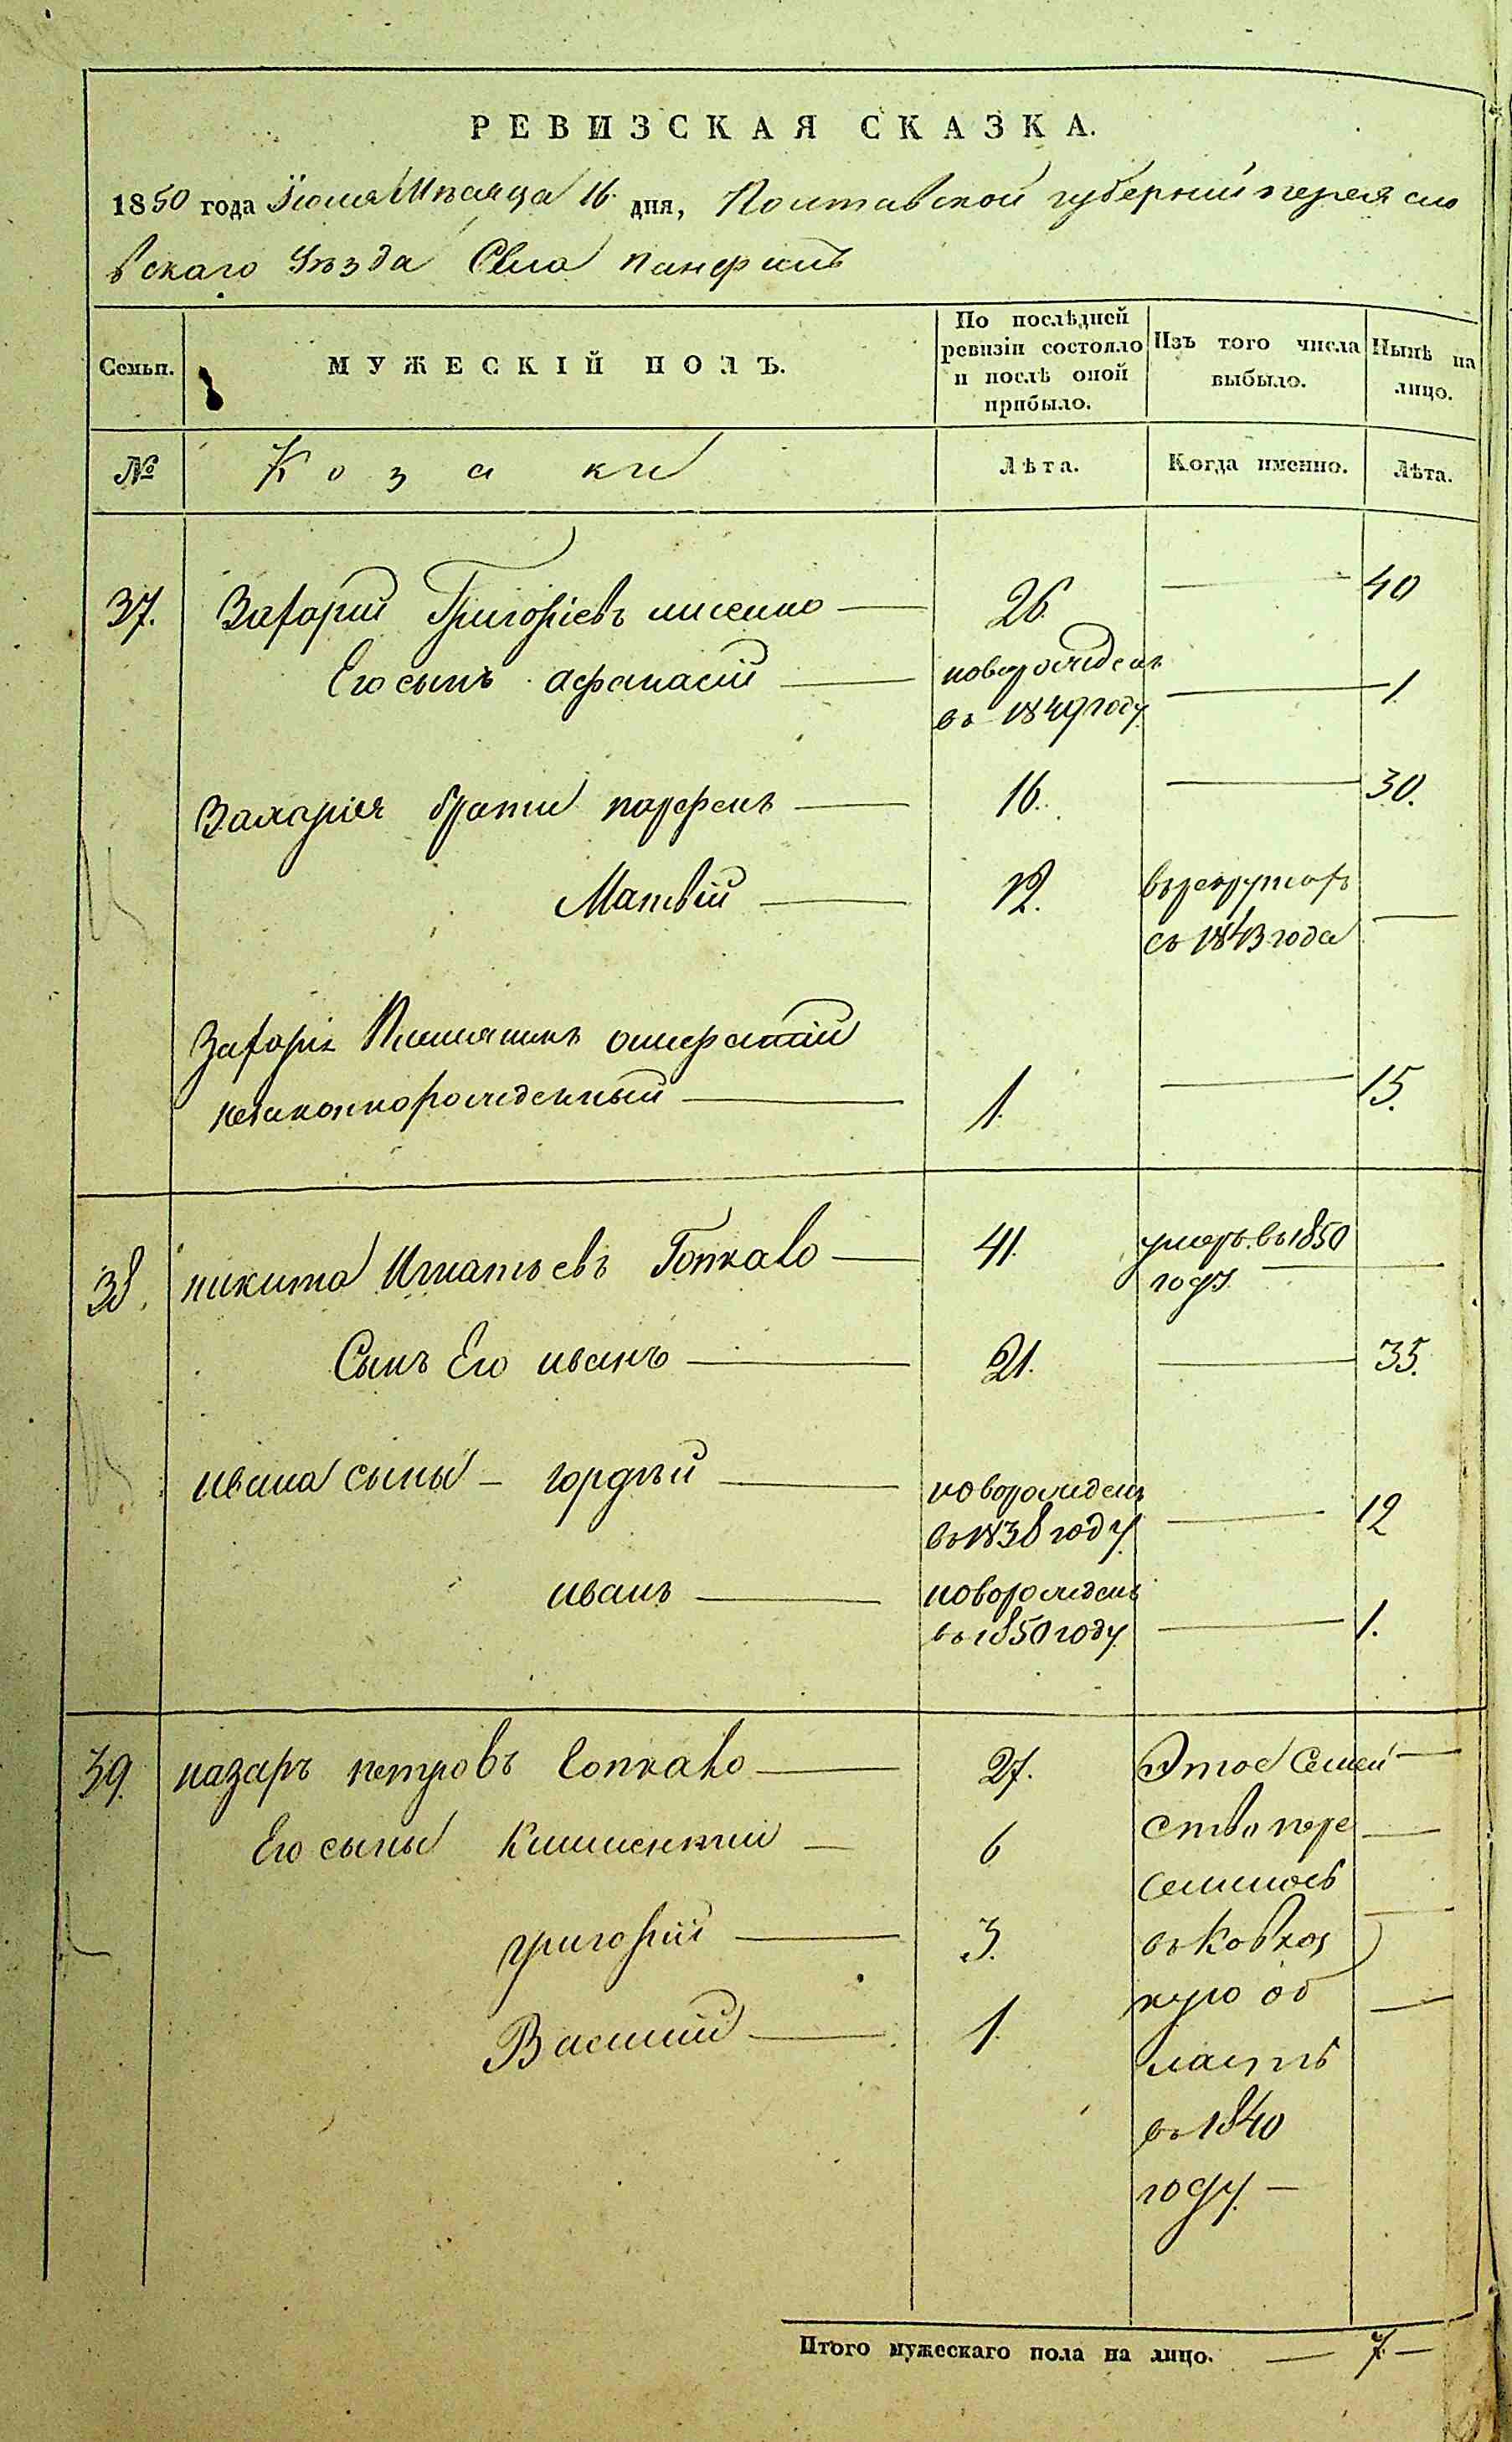 РЕВИЗСКАЯ СКАЗКА.
1850 года Июля Мѣсяца 16 дня, Полтавской губерніи переясло
вскаго Уѣзда Села
Семьи.
МУЖЕСКІЙ ПОЛЪ.
По послѣдней
ревизіи состояло
и послѣ оной
прибыло.
Изъ того числа
выбыло.
Нынѣ на
лицо.
№
Козаки
Лѣта.
Когда именно.
Лѣта.
37. Захарій Григоріевъ лисенко — 26 — 40
Его сынъ афанасій — новорожденъ
въ 1849 году — 1
Захарія братья парфенъ — 16. — 30.
Матвій — 12. въ рекрутахъ
съ 1843 года —
Захарія Племянникъ
незаконнорожденный — 1. — 15.
38. никита Игнатьевъ Гопкало — 41. умеръ въ 1850
году —
Сынъ Его иванъ — 21. — 35.
ивана сыны — гордѣй — новорожденъ
въ 1838 году — 12
иванъ — новорожденъ
въ 1850 году — 1.
39. назаръ петровъ Гопкало — 27. Этое Семей —
Его сыны — 6 ство пере —
селилось
григорій — 3. въ Кавказ —
кую об
Василій — 1. ласть —
въ 1840
году. —
Итого мужескаго пола на лицо. — 7. —